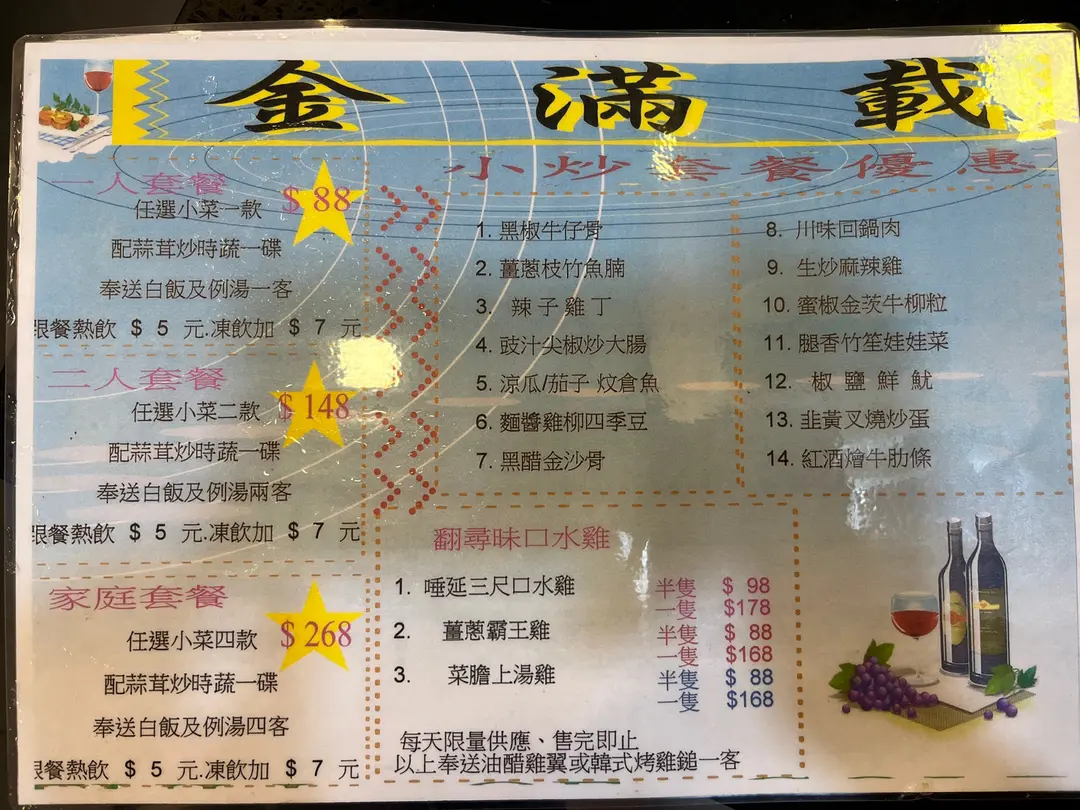 金滿載
小炒套餐優惠
一人套餐 $88
任選小菜一款
配蒜茸炒時蔬一碟
奉送白飯及例湯一客
跟餐熱飲 $ 5 元.凍飲加 $ 7 元
二人套餐
任選小菜二款 $148
配蒜茸炒時蔬一碟
奉送白飯及例湯兩客
跟餐熱飲 $ 5 元.凍飲加 $ 7 元
家庭套餐
任選小菜四款 $268
配蒜茸炒時蔬一碟
奉送白飯及例湯四客
跟餐熱飲 $ 5 元.凍飲加 $ 7 元
1. 黑椒牛仔骨
2. 薑蔥枝竹魚腩
3. 辣子雞丁
4. 豉汁尖椒炒大腸
5. 涼瓜/茄子 炆倉魚
6. 麵醬雞柳四季豆
7. 黑醋金沙骨
8. 川味回鍋肉
9. 生炒麻辣雞
10. 蜜椒金茨牛柳粒
11. 腿香竹笙娃娃菜
12. 椒鹽鮮魷
13. 韭黃叉燒炒蛋
14. 紅酒燴牛肋條
翻尋味口水雞
1. 唾延三尺口水雞 半隻 $ 98
一隻 $178
2. 薑蔥霸王雞 半隻 $ 88
一隻 $168
3. 菜膽上湯雞 半隻 $ 88
一隻 $168
每天限量供應、售完即止
以上奉送油醋雞翼或韓式烤雞鎚一客